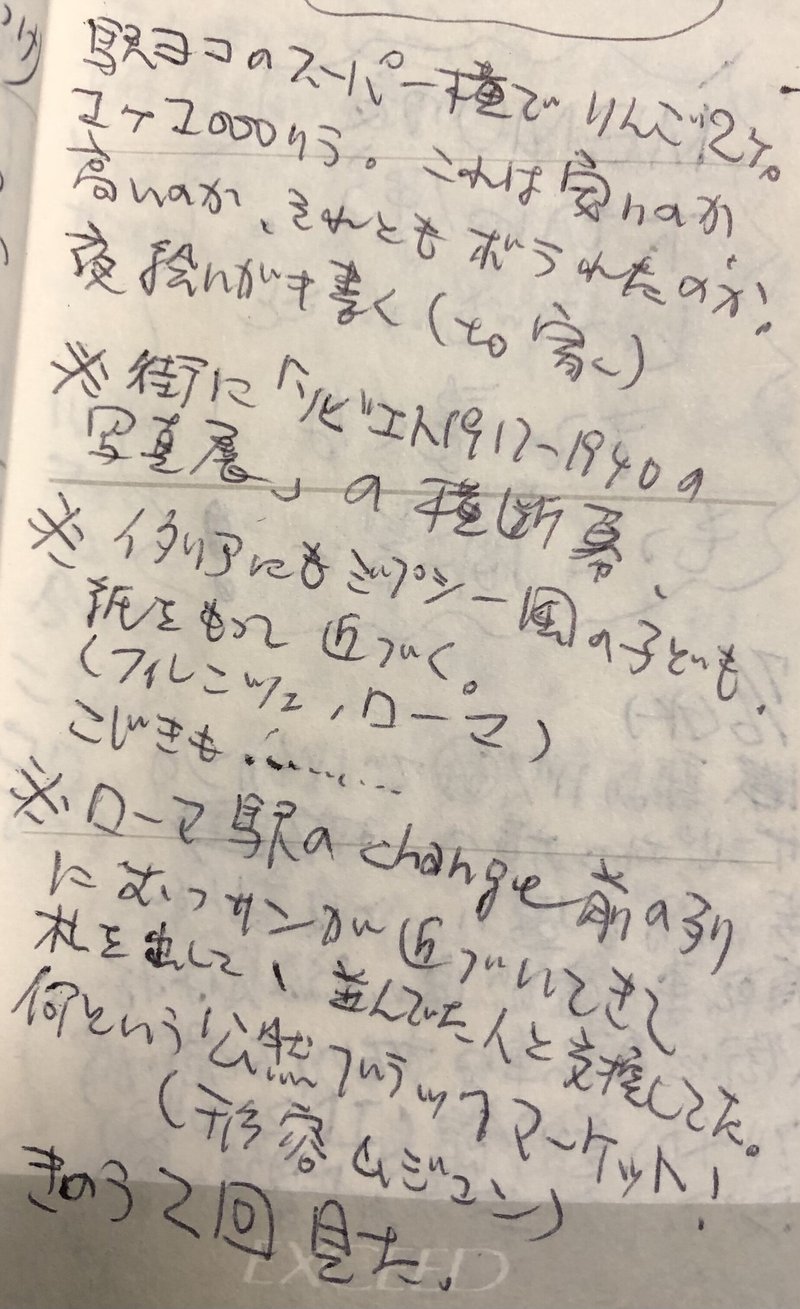 駅ヨコのスーパー種でりんご2ヶ。
1ヶ1000リラ。これは安いのか
高いのか、それともボラれたのか。
夜絵ハガキ書く(to 家)
※街に「ソビエト1917-1940の
写真展」の横断幕、
※イタリアにもジプシー風の子ども、
紙をもって近づく。
(フィレンツェ、ローマ)
こじきも………
※ローマ駅のchange前の列
におっサンが近づいてきて
札を出して、並んでた人と交換してた。
何という公然ブラックマーケット!
(形容ムジュン)
きのう2回見た。
EXCEED